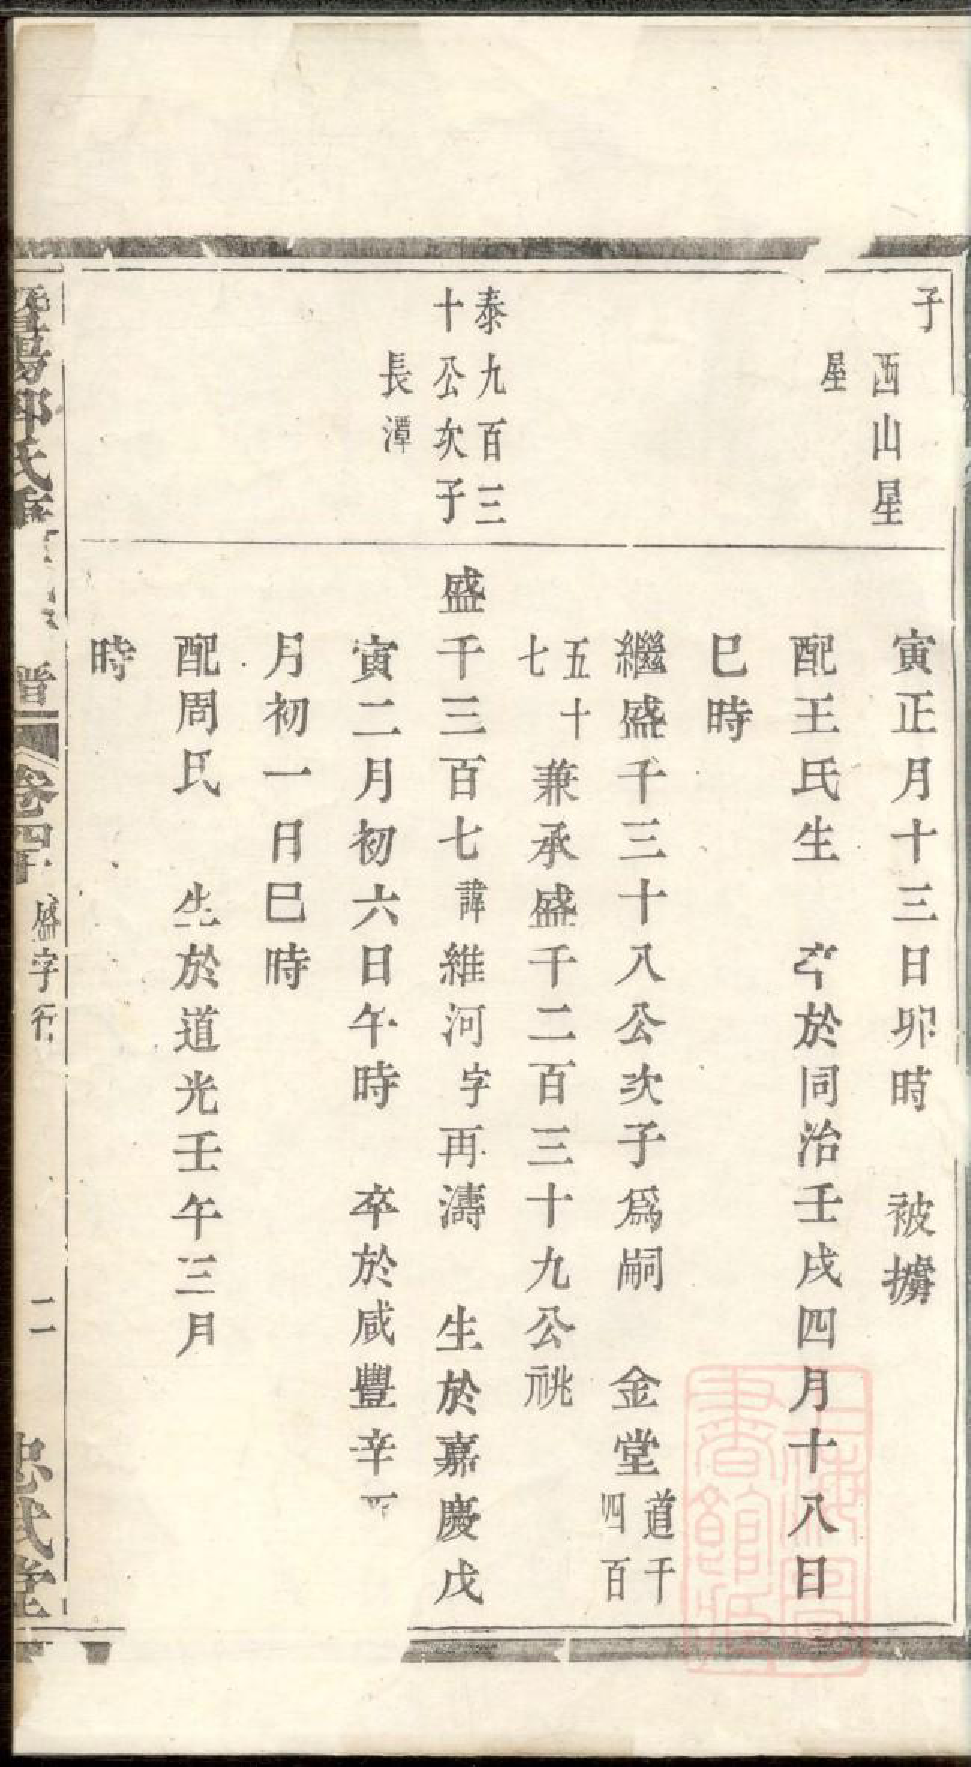 子
西山星
星
寅正月十三日卯時　被擄
配王氏生　卒於同治壬戌四月十八日
巳時
繼盛千三十八公次子爲嗣　金堂道千四百
五十七兼承盛千二百三十九公祧
泰九百三
十公次子
長潭
盛千三百七諱維河字再濤　生於嘉慶戊
寅二月初六日午時　卒於咸豐辛酉
月初一日巳時
配周氏　生於道光壬午三月
時
暨陽
氏
譜
卷四十
盛字行
二
忠武堂
上海圖書館藏